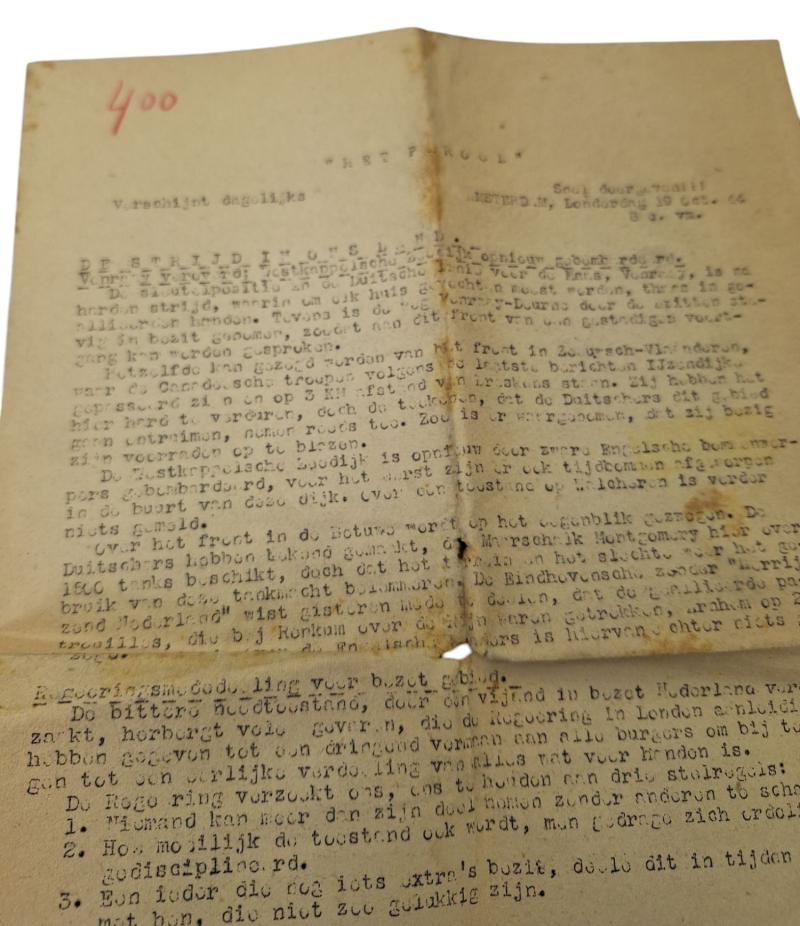 400
"HET PAROOL"
Verschijnt dagelijks
AMSTERDAM, Donderdag 19 Oct. 44
8 u. vm.
DE STRIJD IN ONS LAND.
Venray veroverd; Westkappelsche Zeedijk opnieuw gebombardeerd.
De sleutelpositie in de Duitsche linie voor de Maas, Venray, is na
harden strijd, waarin om elk huis gevochten moest worden, thans in ge-
allieerden handen. Tevens is de weg Venray-Deurne door de Britten ste-
vig in bezit genomen, zoodat aan dit front van een gestadigen voort-
gang kan worden gesproken.
Hetzelfde kan gezegd worden van het front in Zeeuwsch-Vlaanderen,
waar de Canadeesche troepen volgens de laatste berichten IJzendijke
gepasseerd zijn en op 3 KM afstand van Breskens staan. Zij hebben het
hier hard te verduren, doch de teekenen, dat de Duitschers dit gebied
gaan ontruimen, nemen reeds toe. Zoo is er waargenomen, dat zij bezig
zijn voorraden op te blazen.
De Westkappelsche Zeedijk is opnieuw door zware Engelsche bommenwer-
pers gebombardeerd, voor het eerst zijn er ook tijdbommen afgeworpen
in de buurt van deze dijk. Over den toestand op Walcheren is verder
niets gemeld.
Over het front in de Betuwe wordt op het oogenblik gezwegen. De
Duitschers hebben bekend gemaakt, dat Maarschalk Montgomery hier over
1800 tanks beschikt, doch dat het terrein en het slechte weer het ge-
bruik van deze tankmacht belemmeren. De Eindhovensche zender "Herrij-
zend Nederland" wist gisteren mede te deelen, dat de geallieerde pa-
trouilles, die bij Renkum over de Rijn waren getrokken, Arnhem op 2
de Engelsche zenders is hiervan echter niets
Regeeringsmededeeling voor bezet gebied.
De bittere noodtoestand, door den vijand in bezet Nederland veroor-
zaakt, herbergt vele gevaren, die de Regeering in London aanleiding
hebben gegeven tot een dringend vermaan aan alle burgers om bij te
gen tot een eerlijke verdeeling van alles wat voor handen is.
De Regeering verzoekt ons, ons te houden aan drie stelregels:
1. Niemand kan meer dan zijn deel nemen zonder anderen te scha
2. Hoe moeilijk de toestand ook wordt, men gedrage zich ordeli
gedisciplineerd.
3. Een ieder die nog iets extra's bezit, deele dit in tijden
met hen, die niet zoo gelukkig zijn.